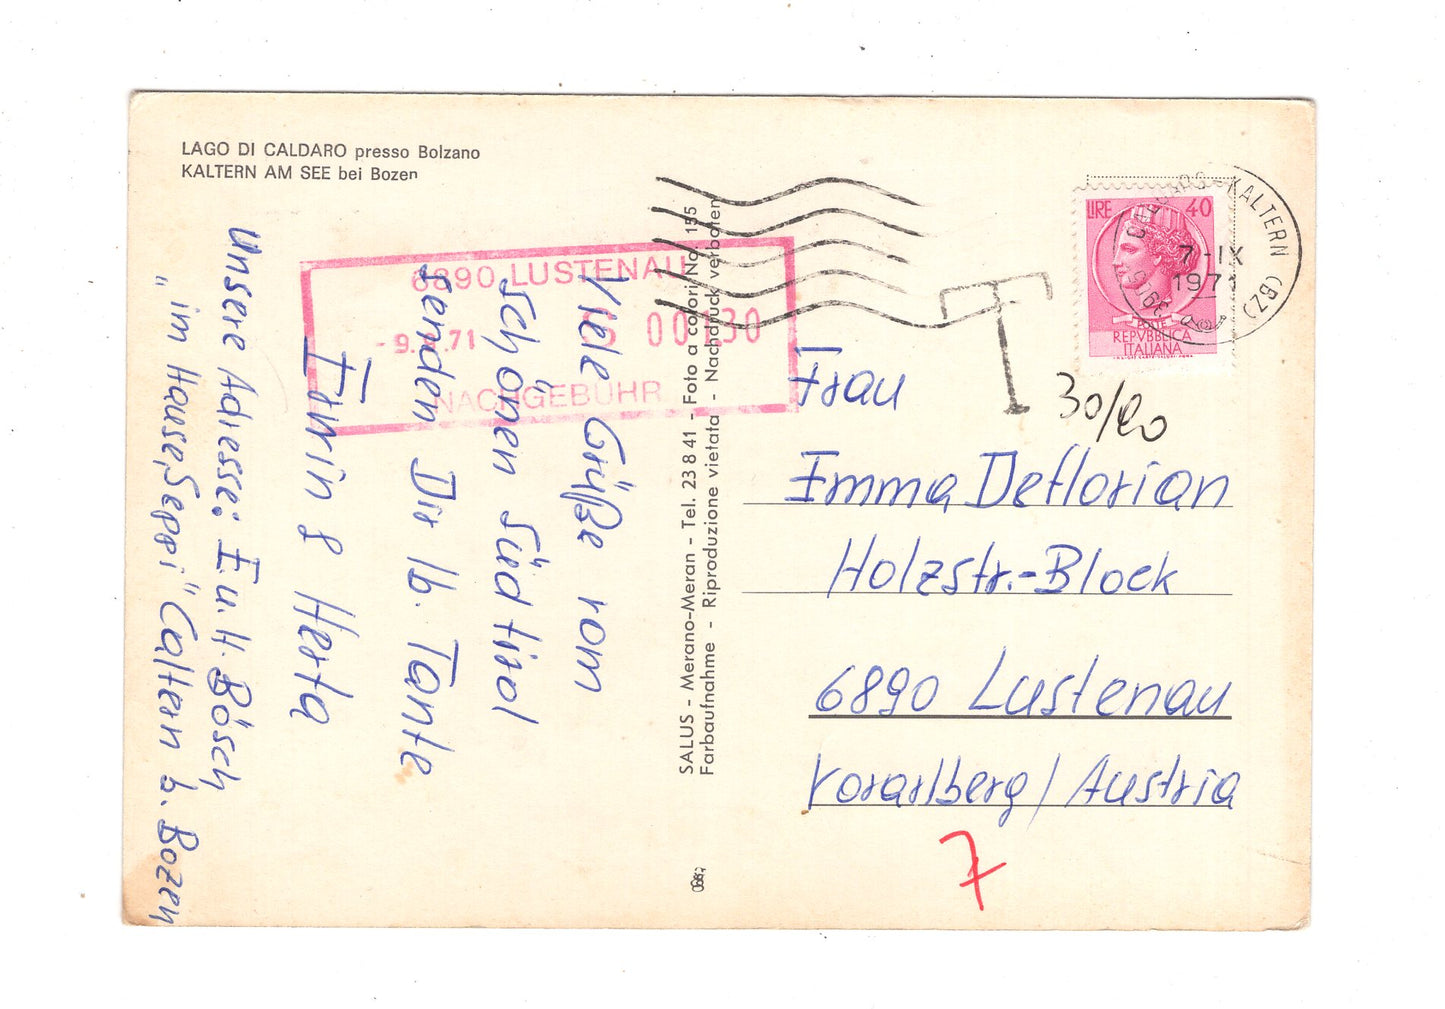 LAGO DI CALDARO presso Bolzano
KALTERN AM SEE bei Bozen
6890 LUSTENAU
- 9. .71 S 00130
NACHGEBÜHR
Viele Grüße vom
schönen Südtirol
senden Dir lb. Tante
Erwin & Herta
Unsere Adresse: E. u. H. Bösch
„im Hause „Seppi" Caltern b. Bozen
SALUS - Merano-Meran - Tel. 23 8 41 - Foto a colori No. 155
Farbaufnahme - Riproduzione vietata - Nachdruck verboten
LIRE 40
POSTE
REPVBBLICA
ITALIANA
KALTERN (BZ)
7-IX
1971
T
30/20
Frau
Emma Deflorian
Holzstr.-Block
6890 Lustenau
Vorarlberg / Austria
7